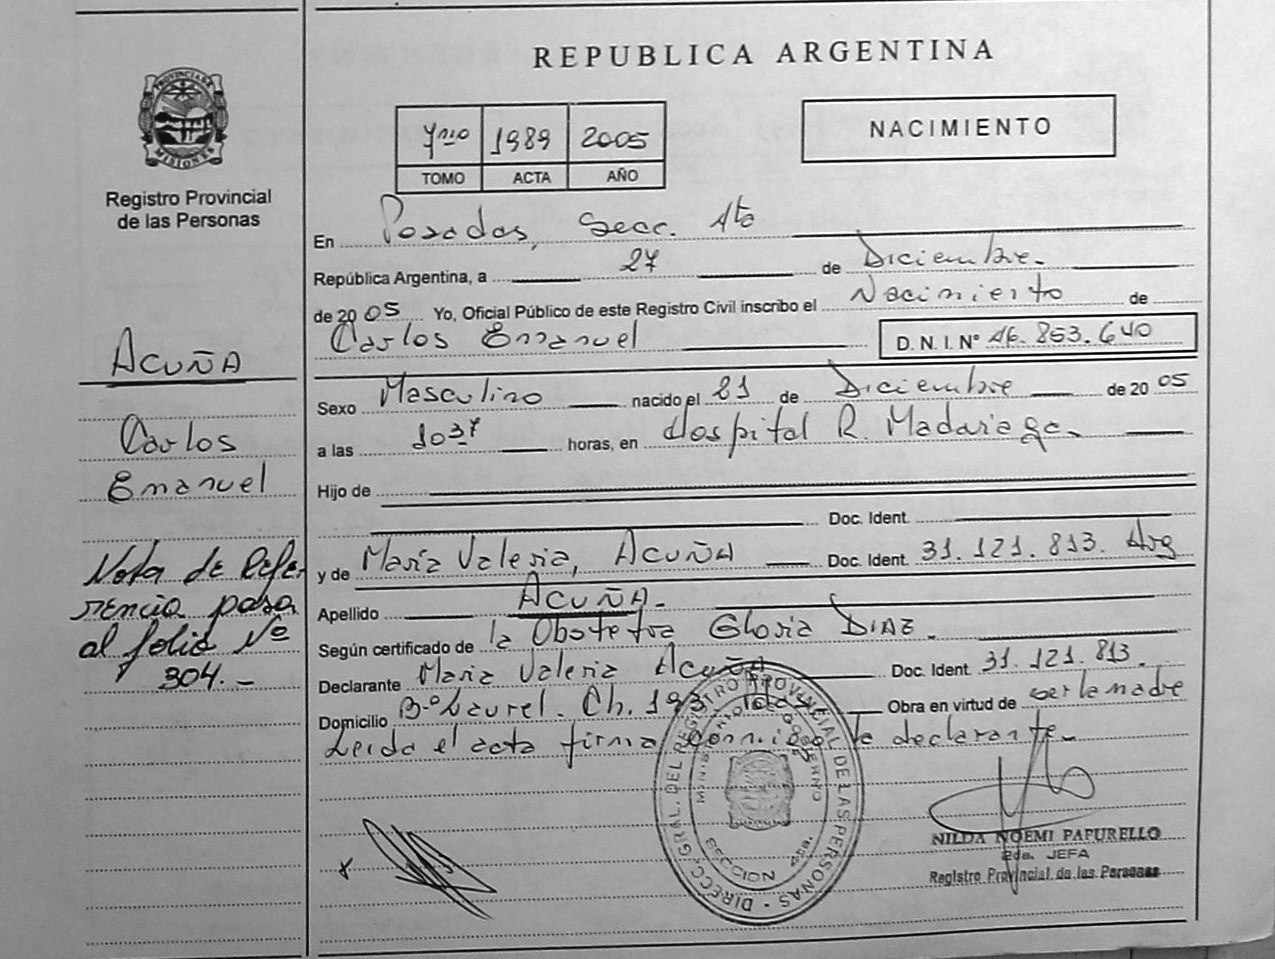 REPUBLICA ARGENTINA
PROVINCIA DE
MISIONES
Registro Provincial
de las Personas
1989 2005
TOMO ACTA AÑO
NACIMIENTO
En Posadas, Secc. 4ta
República Argentina, a 27 de Diciembre.
de 2005 Yo, Oficial Público de este Registro Civil inscribo el Nacimiento de
Carlos Emanuel D. N. I. N° 46.853.640
Sexo Masculino nacido el 21 de Diciembre de 2005
a las 1037 horas, en Hospital R. Madariaga.
Hijo de
Doc. Ident.
y de María Valeria, ACUÑA Doc. Ident. 31.121.813. Arg
Apellido ACUÑA.
Según certificado de la Obstetra Gloria DIAZ.
Declarante Maria Valeria Acuña Doc. Ident. 31.121.813.
Domicilio B° Laurel. Ch. 193 Obra en virtud de ser la madre
Leida el acta firma conmigo la declarante.
ACUÑA
Carlos
Emanuel
Nota de Refe-
rencia pasa
al folio N°
304.-
DIRECC. GRAL. DEL REGISTRO PROVINCIAL DE LAS PERSONAS
SECCION 4ta.
NILDA NOEMI PAPURELLO
2da. JEFA
Registro Provincial de las Personas